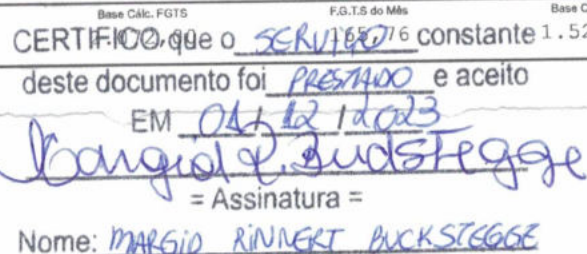 Base Cálc. FGTS F.G.T.S do Mês Base C
CERTIFICO, que o SERVIÇO 165,76 constante 1.52
deste documento foi PRESTADO e aceito
EM 01/12/2023
= Assinatura =
Nome: MARGID RINNERT BUCKSTEGGE